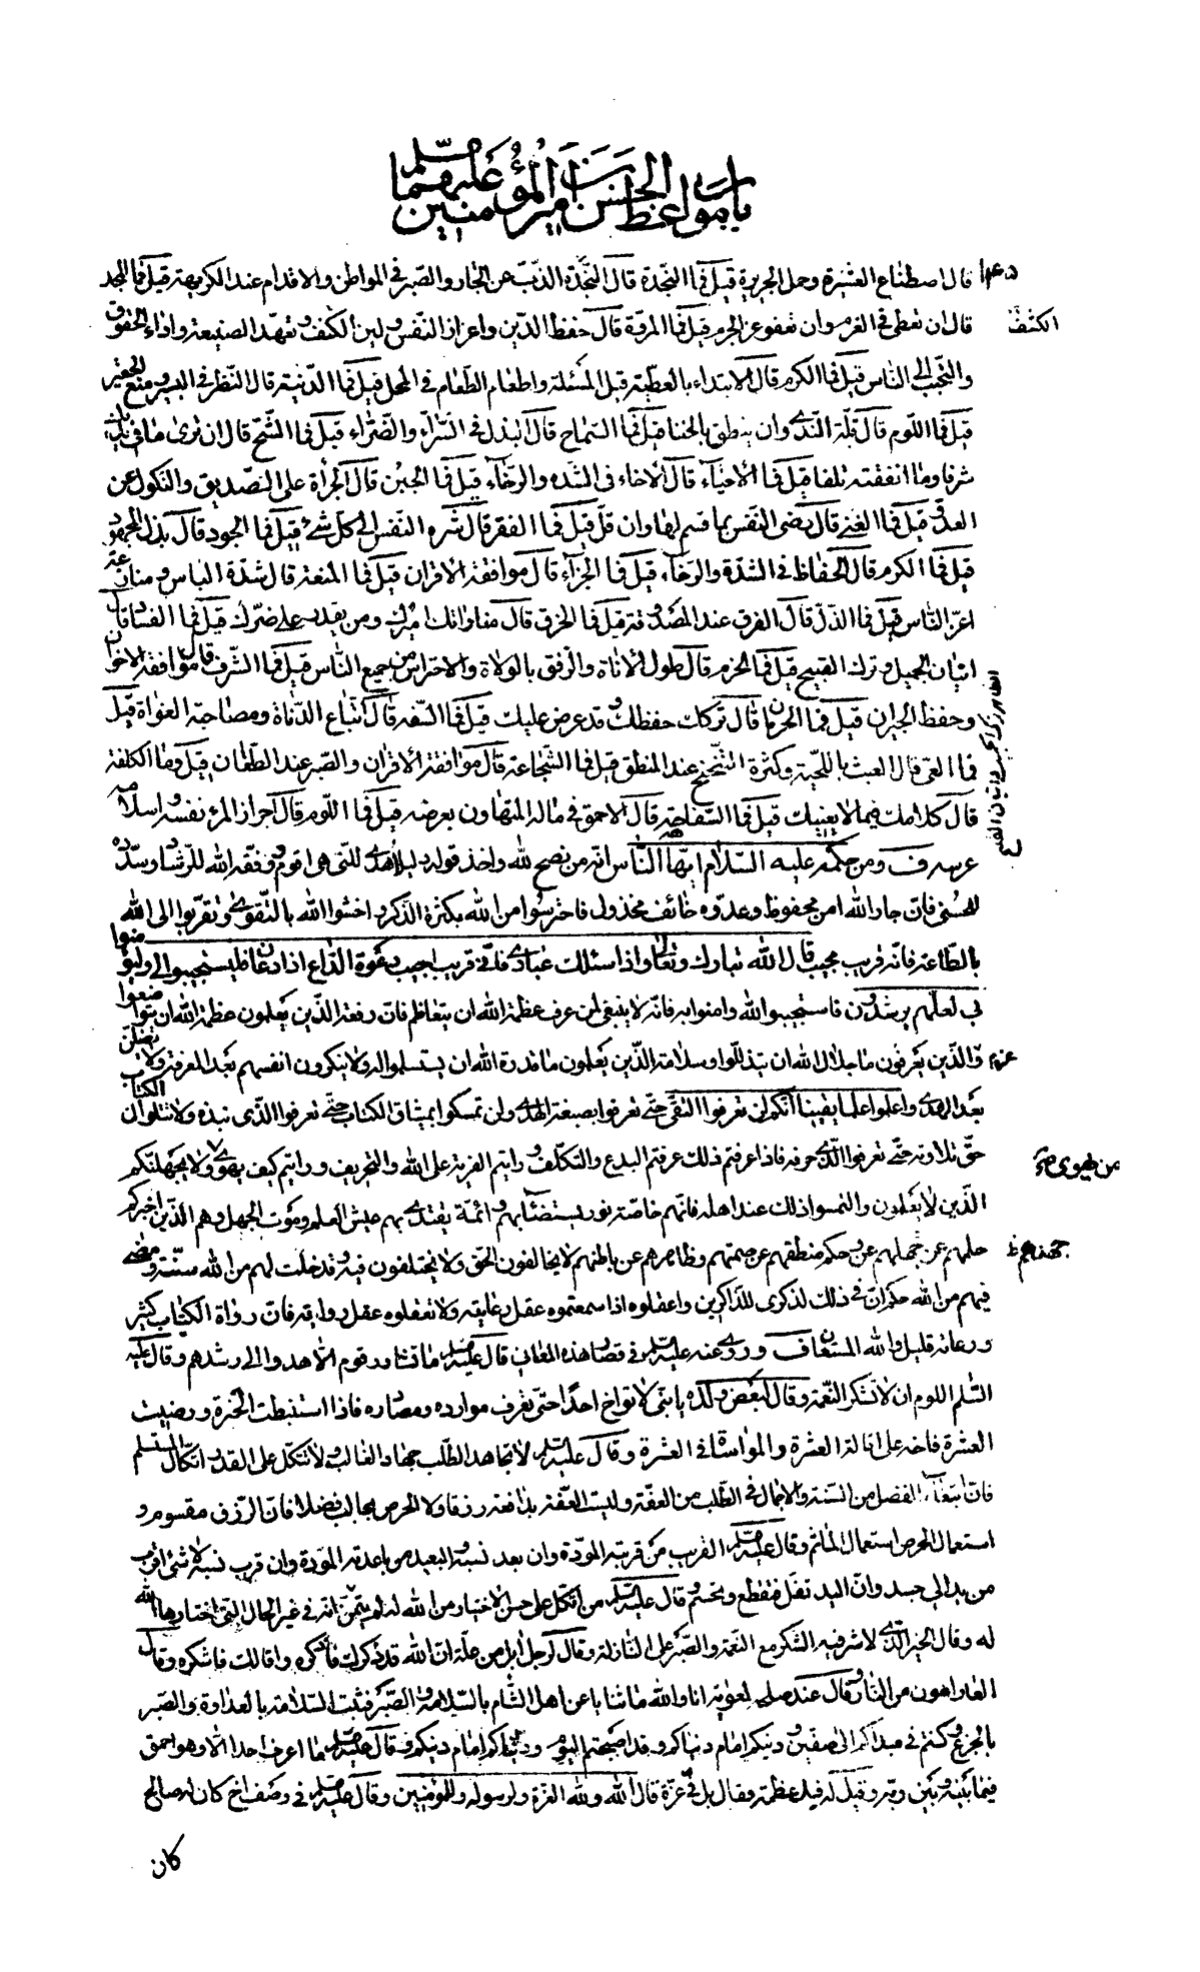 باب مواعظ الحسن بن امير المؤمنين عليهما السلم
قال اصطناع العشيرة وحمل الجريرة قيل فما النجدة قال النجدة الذب عن الجار والصبر فى المواطن والاقدام عند الكريهة قيل فما المجد
الكنف
قال ان تعطى فى الغرم وان تعفو عن الجرم قيل فما المروة قال حفظ الدين واعزاز النفس ولين الكنف وتعهد الصنيعة واداء الحقوق
والتحبب الى الناس قيل فما الكرم قال الابتداء بالعطية قبل المسئلة واطعام الطعام فى المحل قيل فما الدنية قال النظر فى اليسير ومنع الحقير
قيل فما اللوم قال قلة الندى وان ينطق بالخنا قيل فما السماح قال البذل فى السراء والضراء قيل فما الشح قال ان ترى ما فى يديك
شرفا وما انفقته تلفا قيل فما الاخاء قال الاخاء فى الشدة والرخاء قيل فما الجبن قال الجرأة على الصديق والنكول عن
العدو قيل فما الغنى قال رضى النفس بما قسم لها وان قل قيل فما الفقر قال شره النفس الى كل شئ قيل فما الجود قال بذل المجهود
قيل فما الكرم قال الحفاظ فى الشدة والرخاء قيل فما الجزاء قال موافقة الاقران قيل فما المنعة قال شدة الباس ومنازعة
اعز الناس قيل فما الذل قال الفرق عند المصدوقة قيل فما الخرق قال مناواتك اميرك ومن يقدر على ضرك قيل فما السناء قال
اتيان الجميل وترك القبيح قيل فما الحزم قال طول الاناة والرفق بالولاة والاحتراس من جميع الناس قيل فما الشرف قال موافقة الاخوان
وحفظ الجيران قيل فما الحرمان قال تركك حظك وقد عرض عليك قيل فما السفه قال اتباع الدناة ومصاحبة الغواة قيل
فما العى قال العبث باللحية وكثرة التنحنح عند المنطق قيل فما الشجاعة قال موافقة الاقران والصبر عند الطعان قيل وما الكلفة
قال كلامك فيما لا يعنيك قيل فما السفاه قال الاحمق فى ماله المتهاون بعرضه قيل فما اللوم قال احراز المرء نفسه واسلامه
عرسه ف ومن حكمه عليه السلام ايها الناس انه من نصح لله واخذ قوله دليلا هدى للتى هى اقوم ووفقه الله للرشاد وسدده
للحسنى فان جار الله امن محفوظ وعدوه خائف مخذول فاحترسوا من الله بكثرة الذكر واخشوا الله بالتقوى وتقربوا الى الله
بالطاعة فانه قريب مجيب قال الله تبارك وتعالى واذا سئلك عبادى فانى قريب اجيب دعوة الداع اذا دعان فليستجيبوا لى وليؤمنوا
بى لعلهم يرشدون فاستجيبوا لله وامنوا به فانه لا ينبغى لمن عرف عظمة الله ان يتعاظم فان رفعة الذين يعلمون عظمة الله ان يتواضعوا
وعز الذين يعرفون ما جلال الله ان يتذللوا وسلامة الذين يعلمون ما قدرة الله ان يستسلموا له ولا ينكرون انفسهم بعد المعرفة ولا يضلن
بعد الهدى واعلموا علما يقينا انكم لن تعرفوا التقى حتى تعرفوا بصفة الهدى ولن تمسكوا بميثاق الكتاب حتى تعرفوا الذى نبذه ولا تتلوا الكتاب
حق تلاوته حتى تعرفوا الذى حرفه فاذا عرفتم ذلك عرفتم البدع والتكلف ورايتم الفرية على الله والتحريف ورايتم كيف يهوى ولا يجهلنكم
من يهوى
الذين لا يعلمون والتمسوا ذلك عند اهله فانهم خاصة نور يستضاء بهم وائمة يقتدى بهم عيش العلم وموت الجهل وهم الذين اخبركم
حلمهم عن جهلهم عن وحكم منطقهم عن صمتهم وظاهرهم عن باطنهم لا يخالفون الحق ولا يختلفون فيه وقد خلت لهم من الله سنة ومضى
فيهم من الله حكم ان فى ذلك لذكرى للذاكرين واعقلوه اذا سمعتموه عقل رعاية ولا تعقلوه عقل رواية فان رواة الكتاب كثير
ورعاته قليل والله المستعان ف وروى عنه عليه السلم فى قصار هذه المعانى قال عليه السلم ما تشاور قوم الا هدوا الى رشدهم وقال عليه
السلم اللوم ان لا تشكر النعمة وقال لبعض ولده يا بنى لا تواخ احدا حتى تعرف موارده ومصادره فاذا استنبطت الخبرة ورضيت
العشرة فاخه على اقالة العثرة والمواساة فى العسرة وقال عليه السلم لا تجاهد الطلب جهاد الغالب ولا تتكل على القدر اتكال المستسلم
فان ابتغاء الفضل من السنة والاجمال فى الطلب من العفة وليست العفة بدافعة رزقا ولا الحرص بجالب فضلا فان الرزق مقسوم و
استعمال الحرص استعمال الماثم وقال عليه السلم القريب من قربته المودة وان بعد نسبه والبعيد من باعدته المودة وان قرب نسبه لا شئ اقرب
من يد الى جسد وان اليد تفل فتقطع وتحسم وقال عليه السلم من اتكل على حسن الاختيار من الله له لم يتمن انه فى غير الحال التى اختارها الله
له وقال الخير الذى لا شر فيه الشكر مع النعمة والصبر على النازلة وقال لرجل ابل من علة ان الله قد ذكرك فاذكره واقالك فاشكره وقال
العار اهون من النار وقال عند صلحه لمعوية انا والله ما ثنانا عن اهل الشام بالسلامة والصبر فثبت السلامة بالعداوة والصبر
بالجزع وكنتم فى مبداكم الى صفين ودينكم امام دنياكم وقد اصبحتم اليوم ودنياكم امام دينكم وقال عليه السلم ما اعرف احدا الا وهو احمق
فيما بينه وبين ربه وقيل له فيك عظمة وفقال بل فى عزة قال الله ولله العزة ولرسوله وللمؤمنين وقال عليه السلم فى وصف اخ كان له صالح
كان